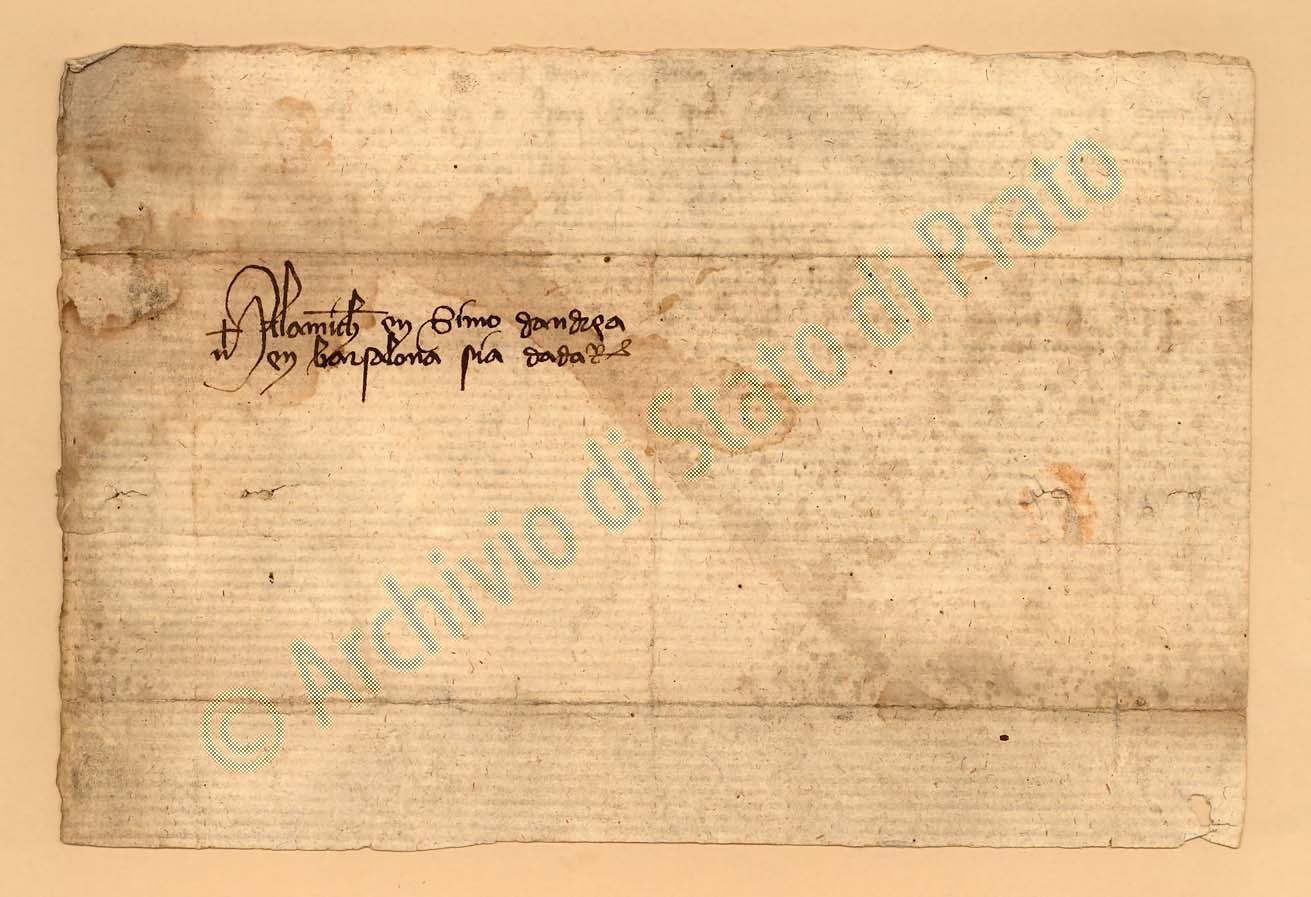 Al amich en Simo dandrea
en barsalona sia dada
© Archivio di Stato di Prato